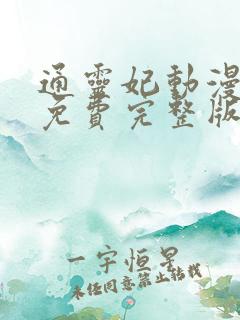 通靈妃動漫
免費完整版
一宇恒星
未经同意禁止转载